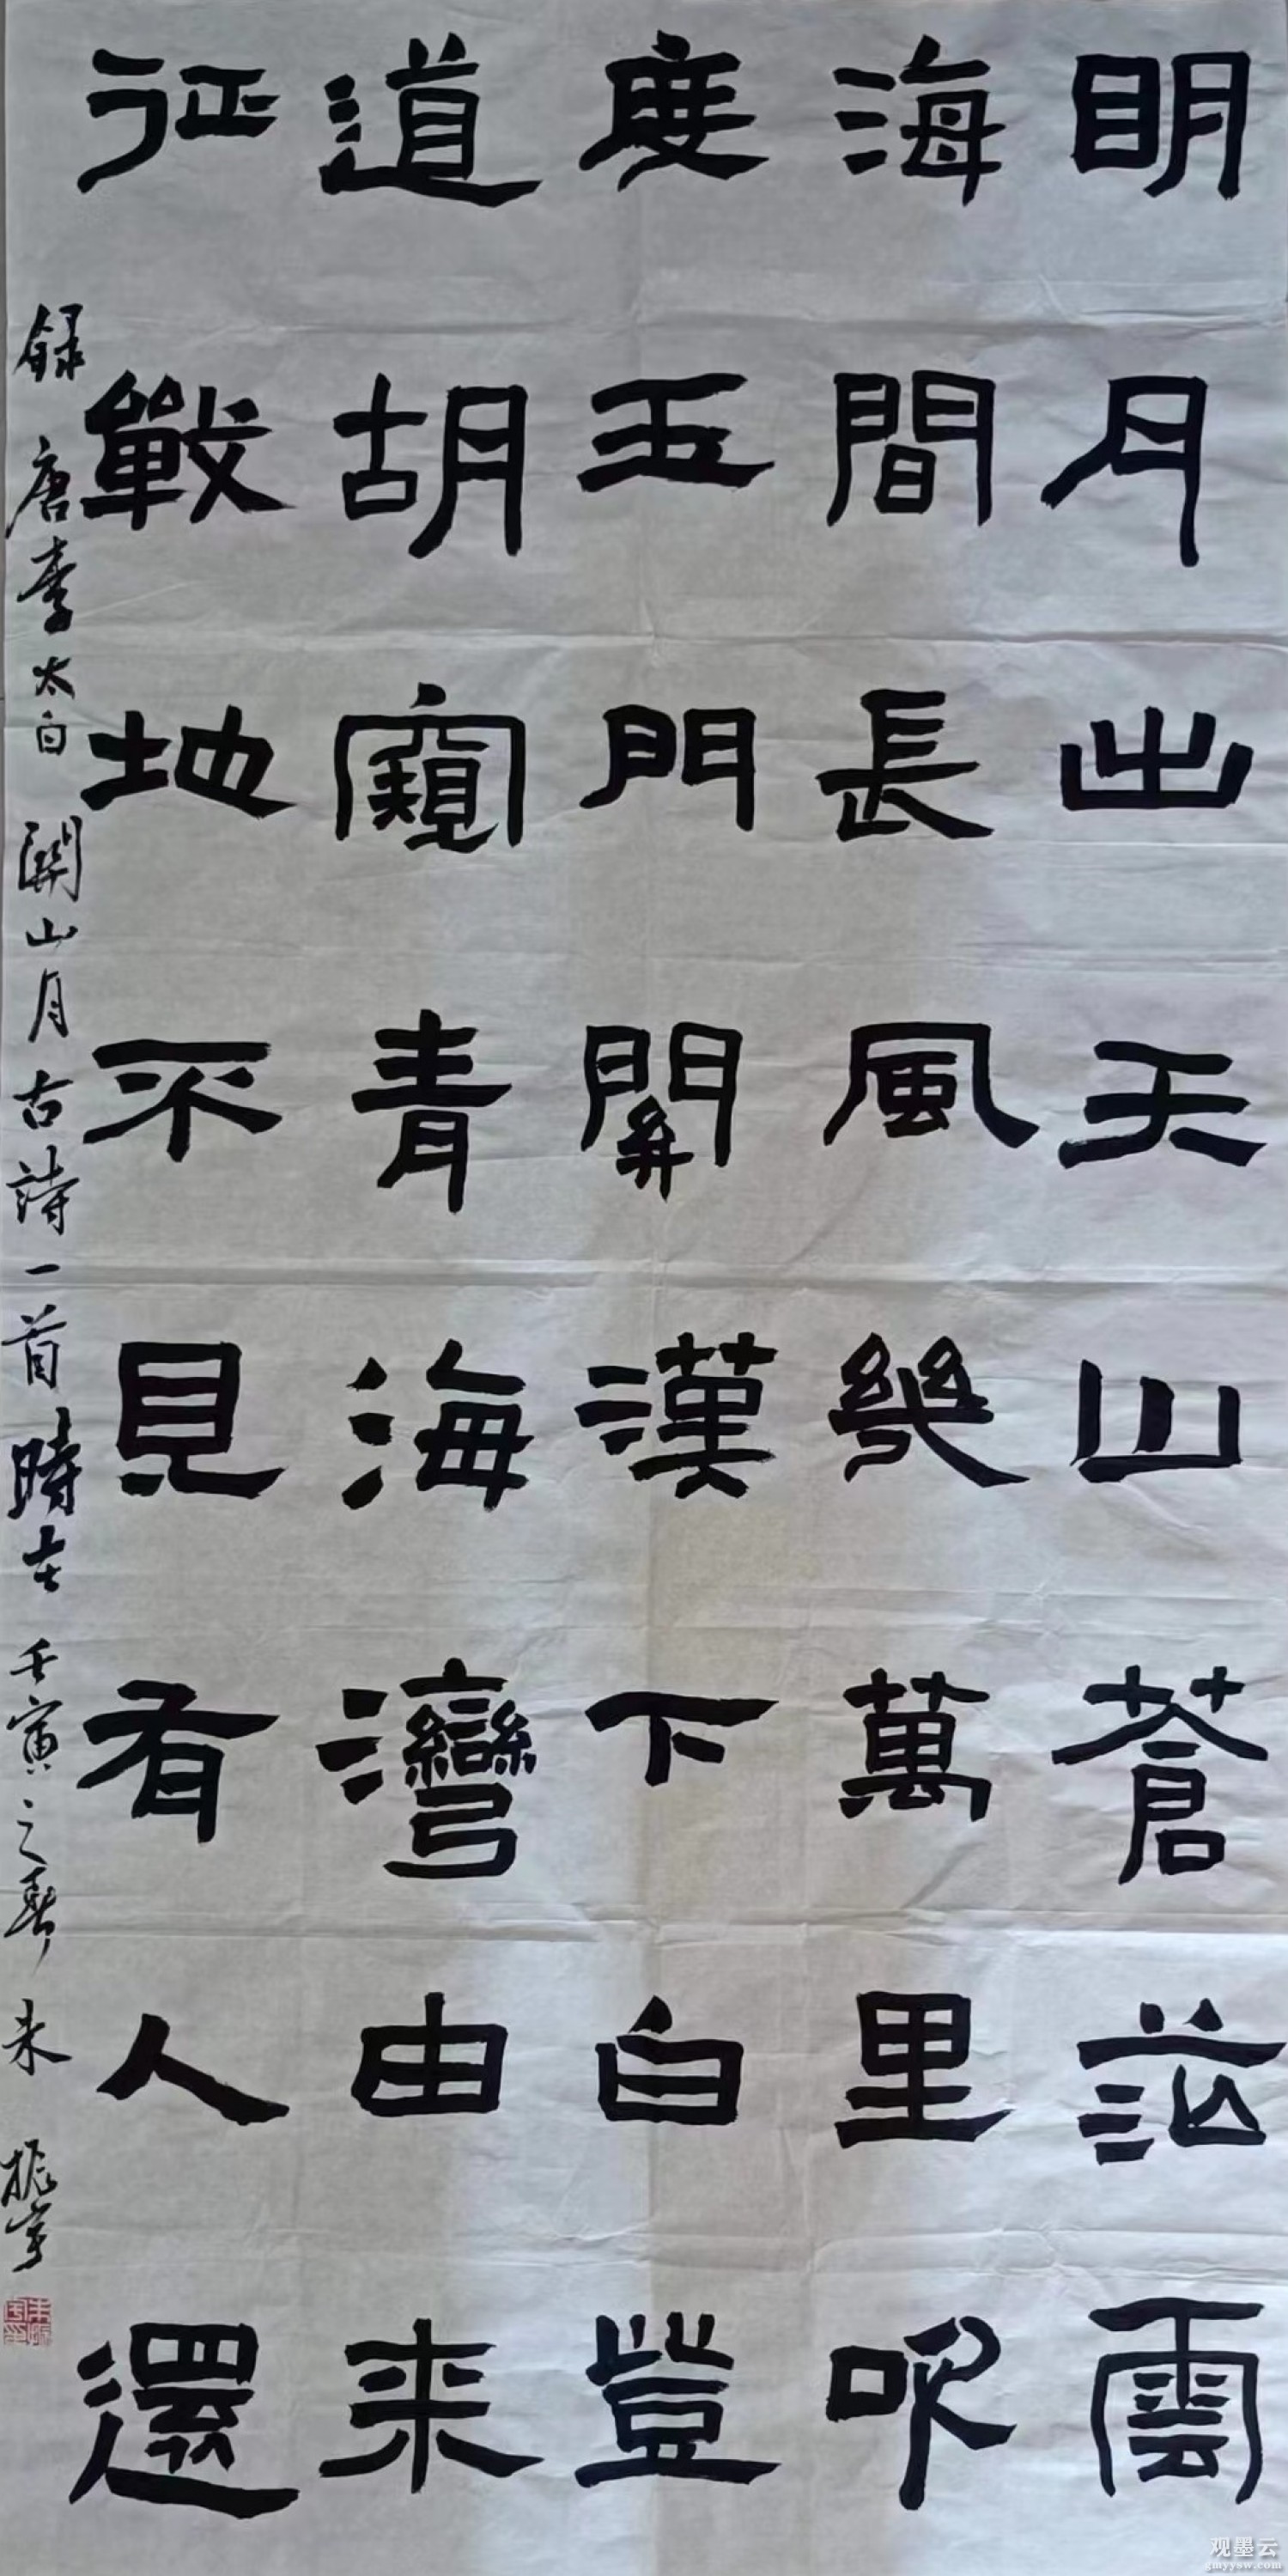 明月出天山蒼茫雲
海間長風幾萬里吹
度玉門關漢下白登
道胡窺青海灣由来
征戰地不見有人還
録唐李太白關山月古詩一首時在壬寅之春朱振
观墨云
gmyysw.com